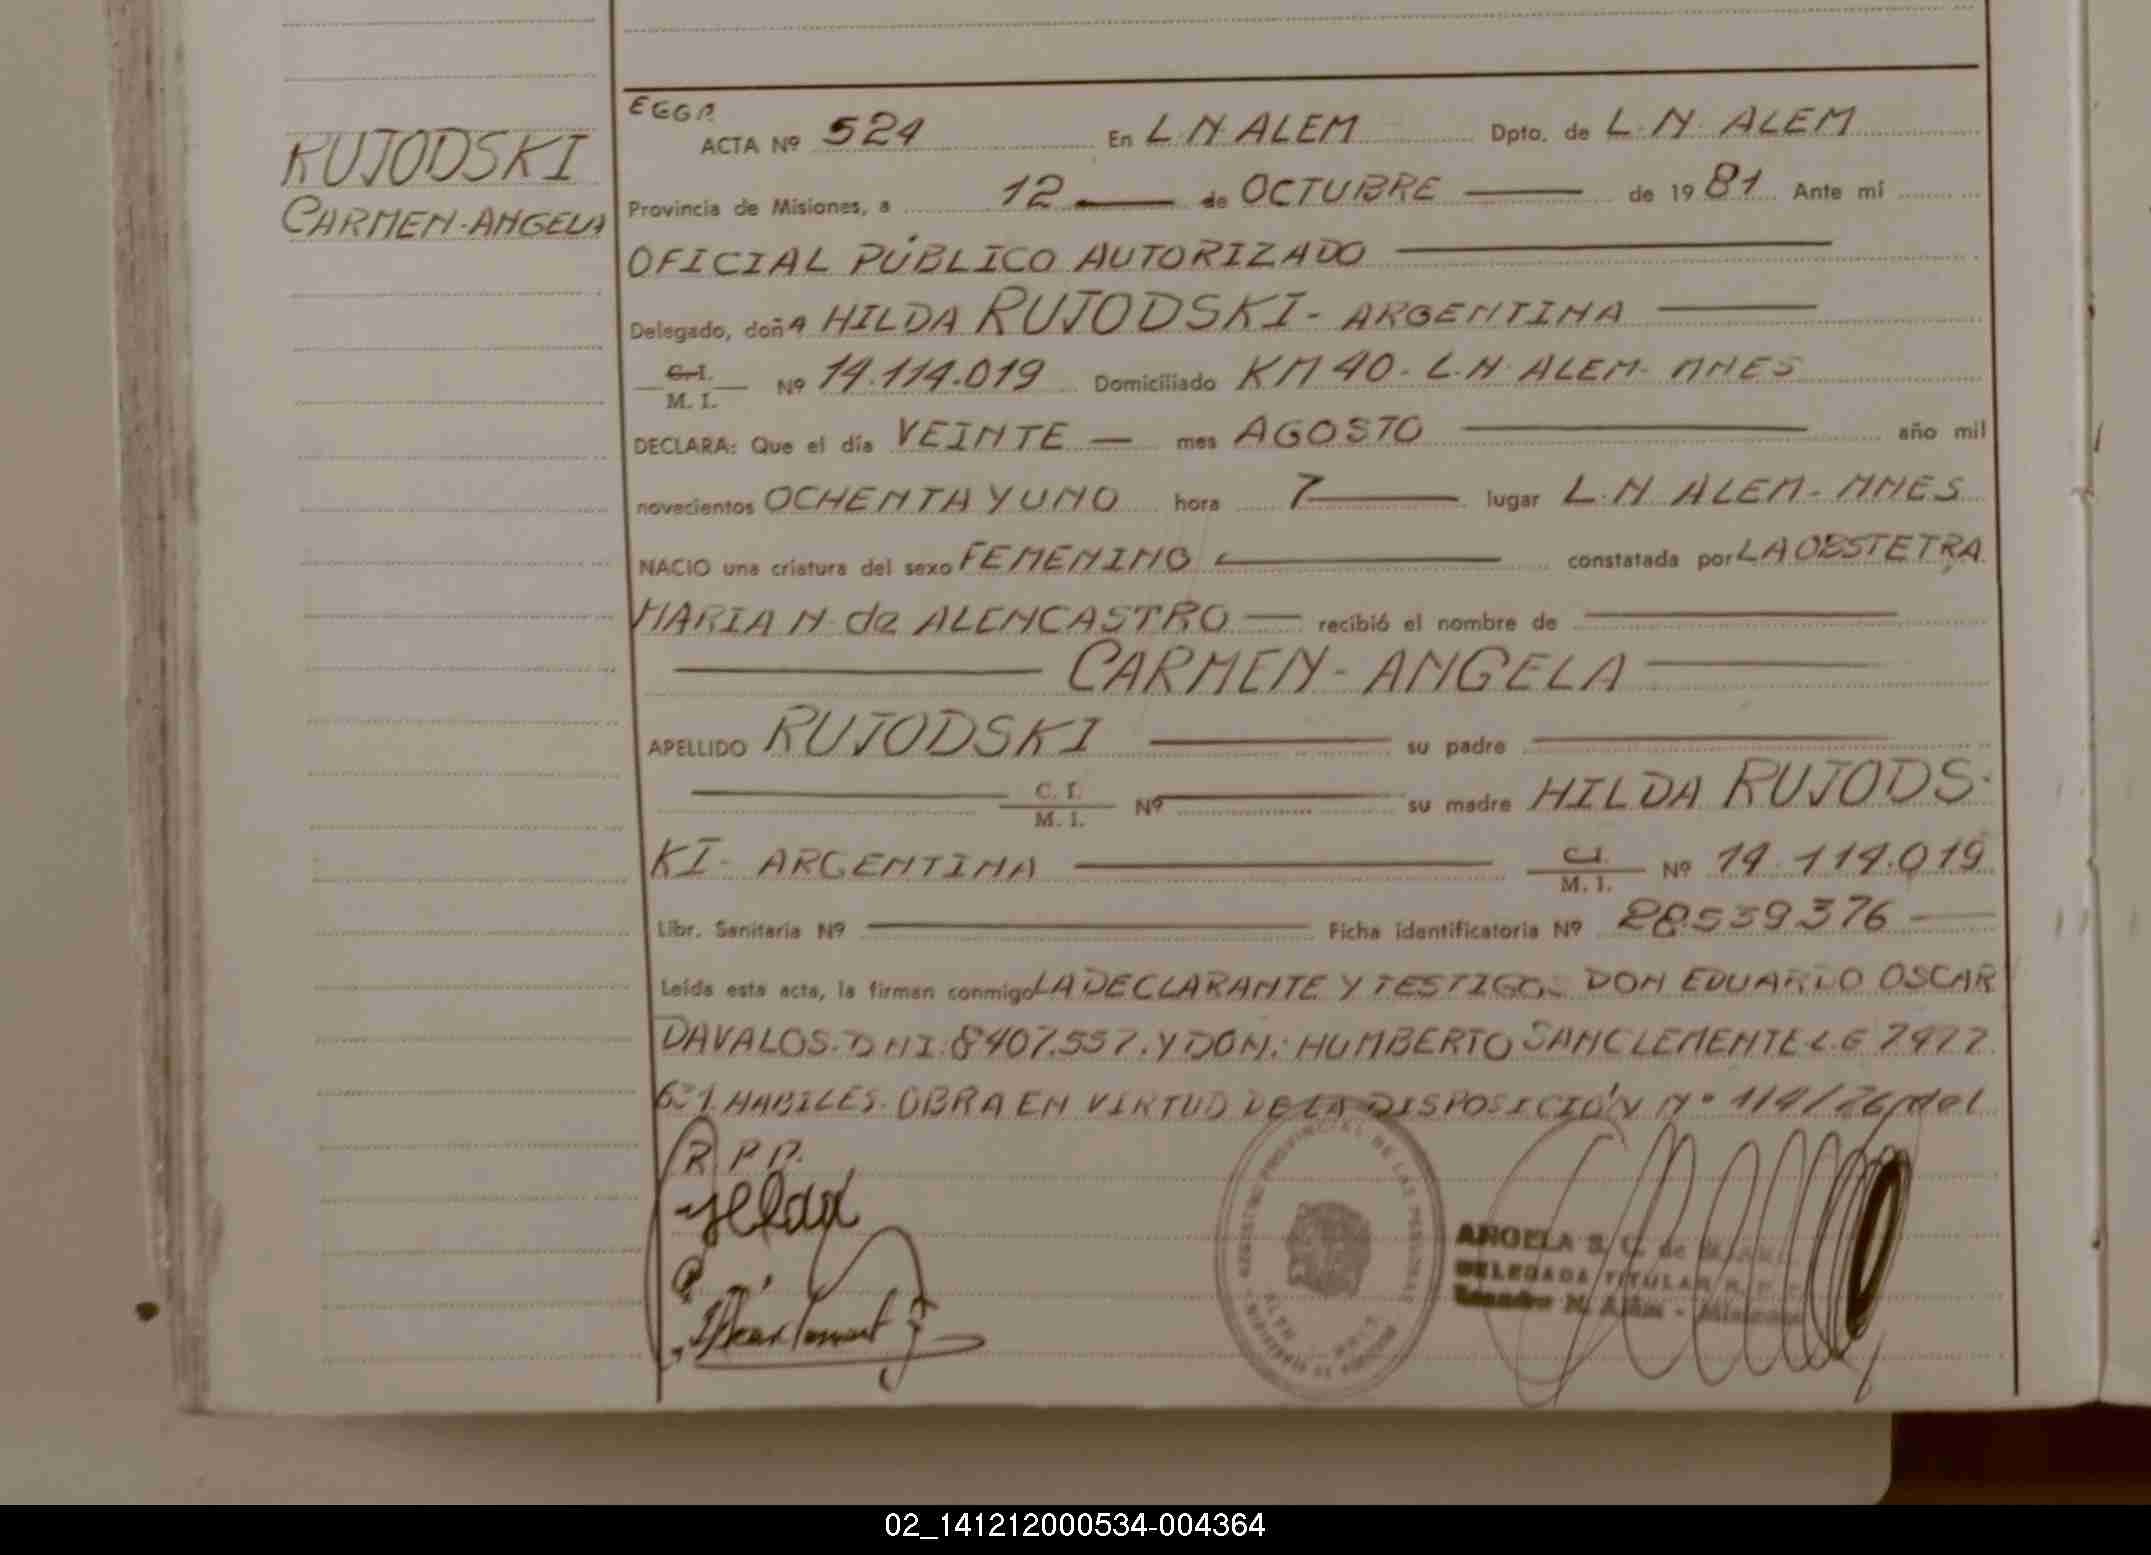 RUJODSKI
CARMEN-ANGELA
ACTA Nº 524 En L N ALEM Dpto. de L. N. ALEM
Provincia de Misiones, a 12 de OCTUBRE de 1981 Ante mí
OFICIAL PÚBLICO AUTORIZADO
Delegado, doñA HILDA RUJODSKI - ARGENTINA
C.I. M.I. Nº 14.114.019 Domiciliado KM 40 - L.N. ALEM - MNES
DECLARA: Que el día VEINTE mes AGOSTO año mil
novecientos OCHENTA Y UNO hora 7 lugar L.N ALEM - MNES
NACIO una criatura del sexo FEMENINO constatada por LA OBSTETRA
MARIA N de ALENCASTRO recibió el nombre de
CARMEN - ANGELA
APELLIDO RUJODSKI su padre
C. I. M. I. Nº su madre HILDA RUJODS-
KI - ARGENTINA C.I. M. I. Nº 14.114.019
Libr. Sanitaria Nº Ficha identificatoria Nº 28.539.376
Leída esta acta, la firman conmigo LA DECLARANTE Y TESTIGOS DON EDUARDO OSCAR
DAVALOS. DNI. 8407.557. Y DON. HUMBERTO SANCLEMENTE L.E 7477
HABILES. OBRA EN VIRTUD DE LA DISPOSICIÓN Nº 114/76 del
R P P.
REGISTRO PROVINCIAL DE LAS PERSONAS
ANGELA S. C. de
DELEGADA TITULAR R. P. P.
Leandro N. Alem - Misiones
02_141212000534-004364